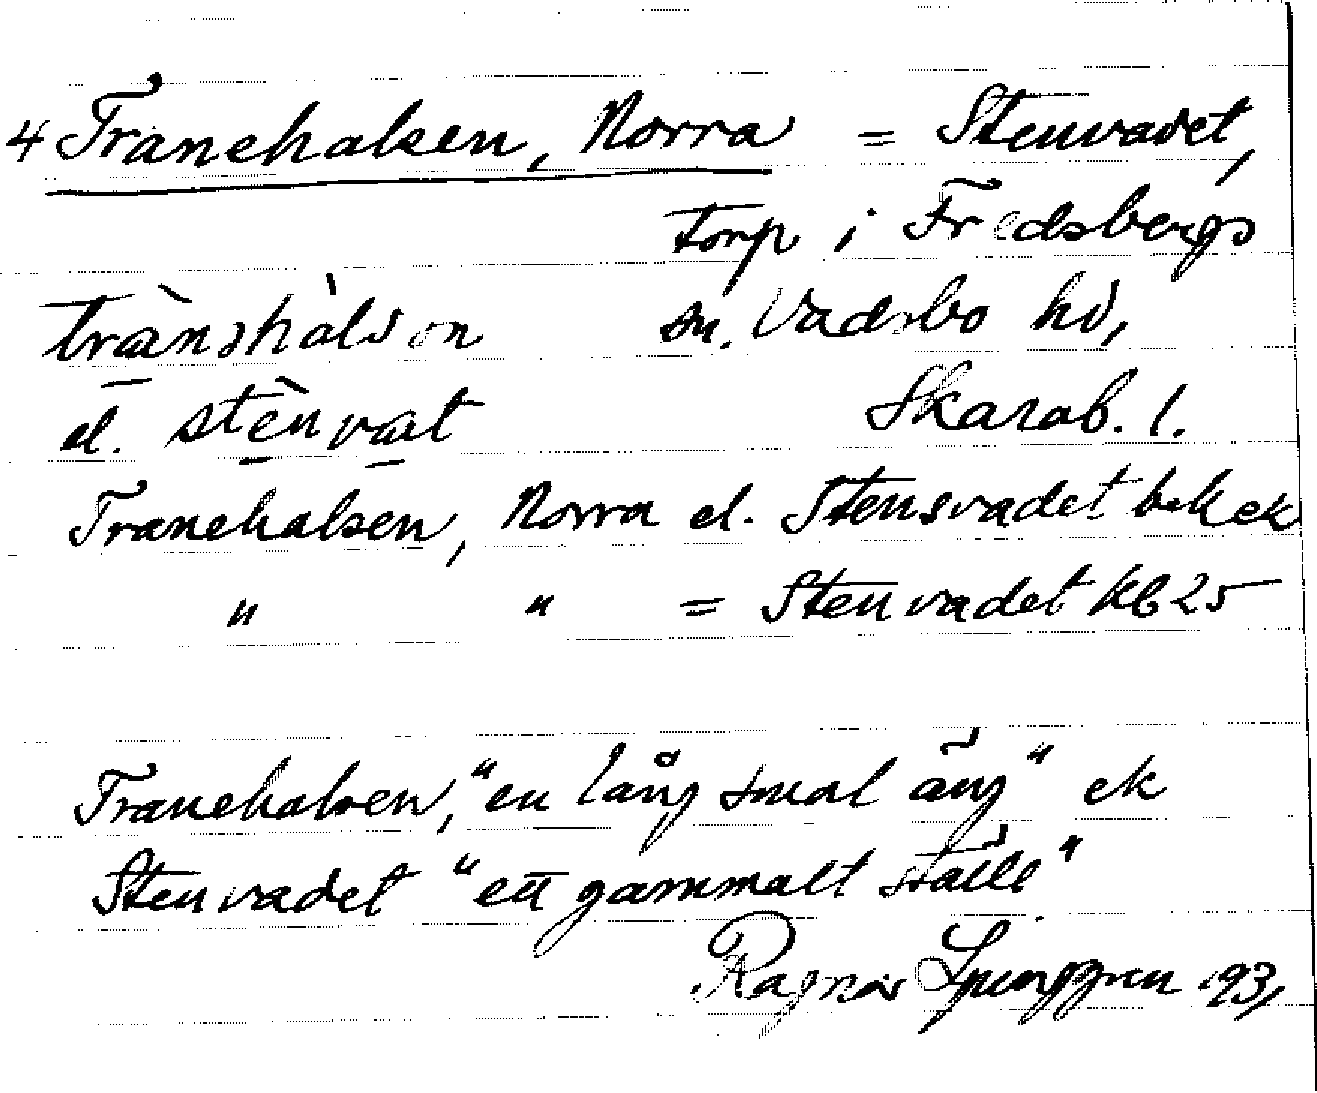 4 Tranehalsen, Norra = Stenvadet,
torp i Fredsbergs
sn. Vadsbo hd,
el. stènvat Skarab. l.
Tranehalsen, Norra el. Stensvadet bek ek
" " = Stenvadet kb 25
Tranehalsen, "en lång smal äng" ek
Stenvadet "ett gammalt ställe"
Ragnar Ljunggren 193